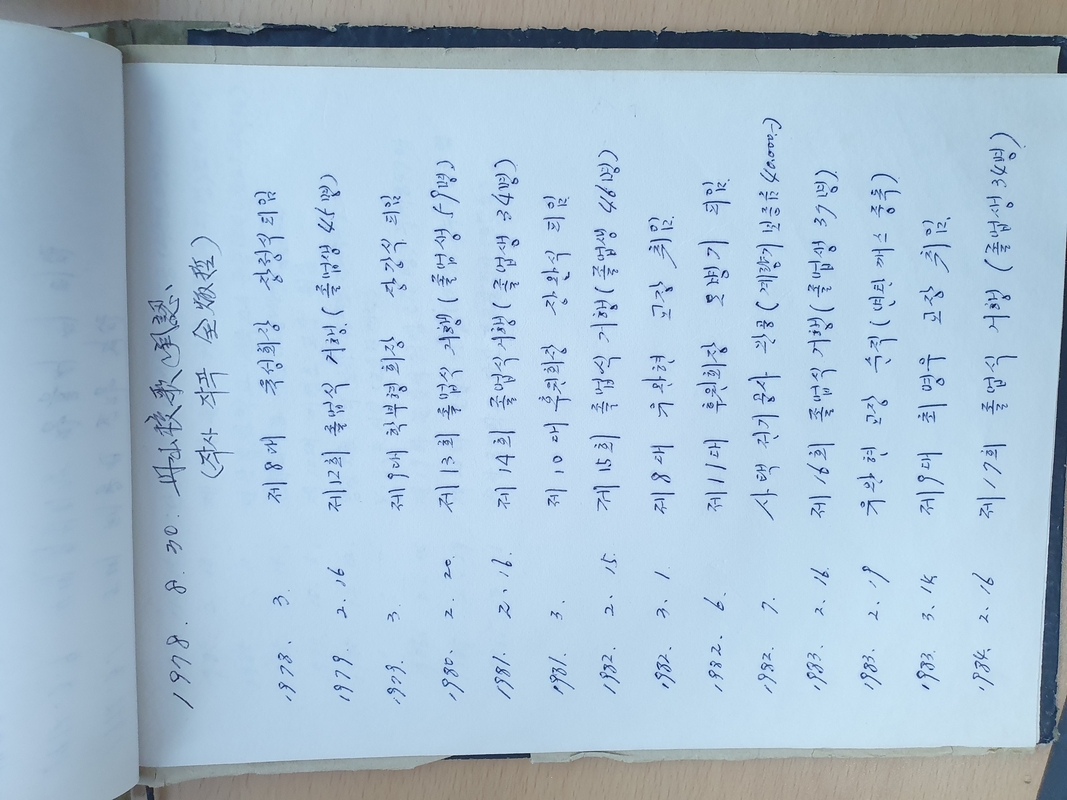 1978. 8. 30. 丹山校歌(承認)
(작사 작곡 金
1978. 3. 제8대 육성회장 장창식 퇴임
1979. 2. 16 제12회 졸업식 거행 (졸업생 45명)
1979. 3. 제9대 학부형회장 장강식 퇴임
1980. 2. 20. 제13회 졸업식 거행 (졸업생 59명.)
1981. 2. 16. 제14회 졸업식거행 (졸업생 34명)
1981. 3. 제10대 후원회장 장완식 퇴임
1982. 2. 15. 제15회 졸업식 거행 (졸업생 46명)
1982. 3. 1. 제8대 우완현 교장 취임.
1982. 6. 제11대 후원회장 오병기 퇴임.
1982. 7. 사택 전기공사 완공 (계량기 보증금 40000.-)
1983. 2. 16. 제16회 졸업식 거행 (졸업생 37명.)
1983. 2. 19 우완현 교장 순직 (연탄 개스 중독.)
1983. 3. 14 제9대 최영우 교장 취임
1984. 2. 16 제17회 졸업식 거행 (졸업생 34명.)